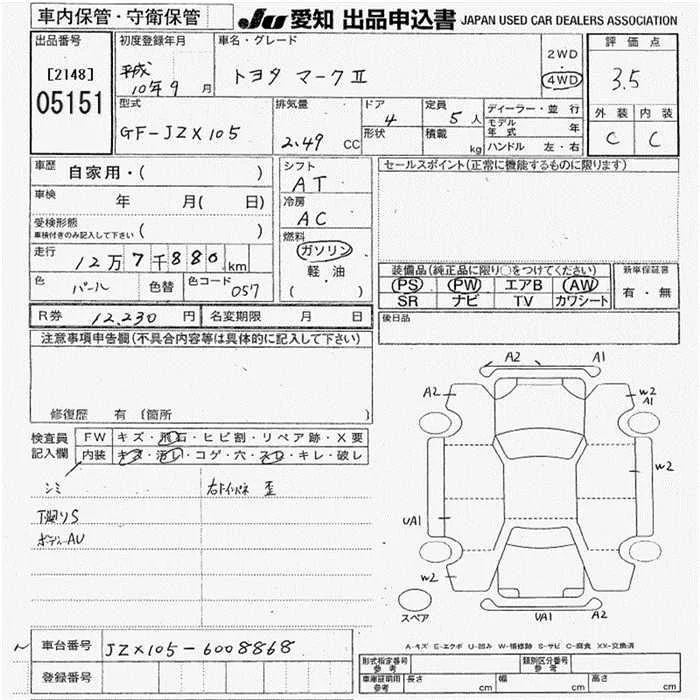 車内保管・守衛保管
JU 愛知 出品申込書 JAPAN USED CAR DEALERS ASSOCIATION
出品番号
[2148]
05151
初度登録年月
平成
10年9月
車名・グレード
トヨタ マークⅡ
2WD
4WD
評価点
3.5
外装 内装
C C
型式
GF-JZX105
排気量
2.49 CC
ドア
4
形状
定員
5人
積載
kg
ディーラー・並行
モデル年式 年
ハンドル 左・右
車歴 自家用・( )
車検 年 月( 日)
受検形態
車検付きのみ記入して下さい ( )
走行 12万7千880km
色 パール 色替 色コード 057
シフト
AT
冷房
AC
燃料
ガソリン
軽油
( )
セールスポイント(正常に機能するものに限ります)
装備品(純正品に限り○をつけてください)
PS PW エアB AW
SR ナビ TV カワシート
新車保証書
有・無
R券 12,230円 名変期限 月 日
後日品
注意事項申告欄(不具合内容等は具体的に記入して下さい)
修復歴 有 〔箇所 〕
検査員記入欄
FW キズ・飛石・ヒビ割・リペア跡・X要
内装 キズ・汚レ・コゲ・穴・スレ・キレ・破レ
シミ
下廻りS
ボディーAU
A2 A1
A2 W2
A1
W2
UA1
W2
UA1 A2
スペア
A-キズ E-エクボ U-凹み W-補修跡 S-サビ C-腐食 XX-交換済
車台番号 JZX105-6008868
登録番号
形式指定番号 参考
類別区分番号 参考
車庫証明用 参考 長さ cm 幅 cm 高さ cm